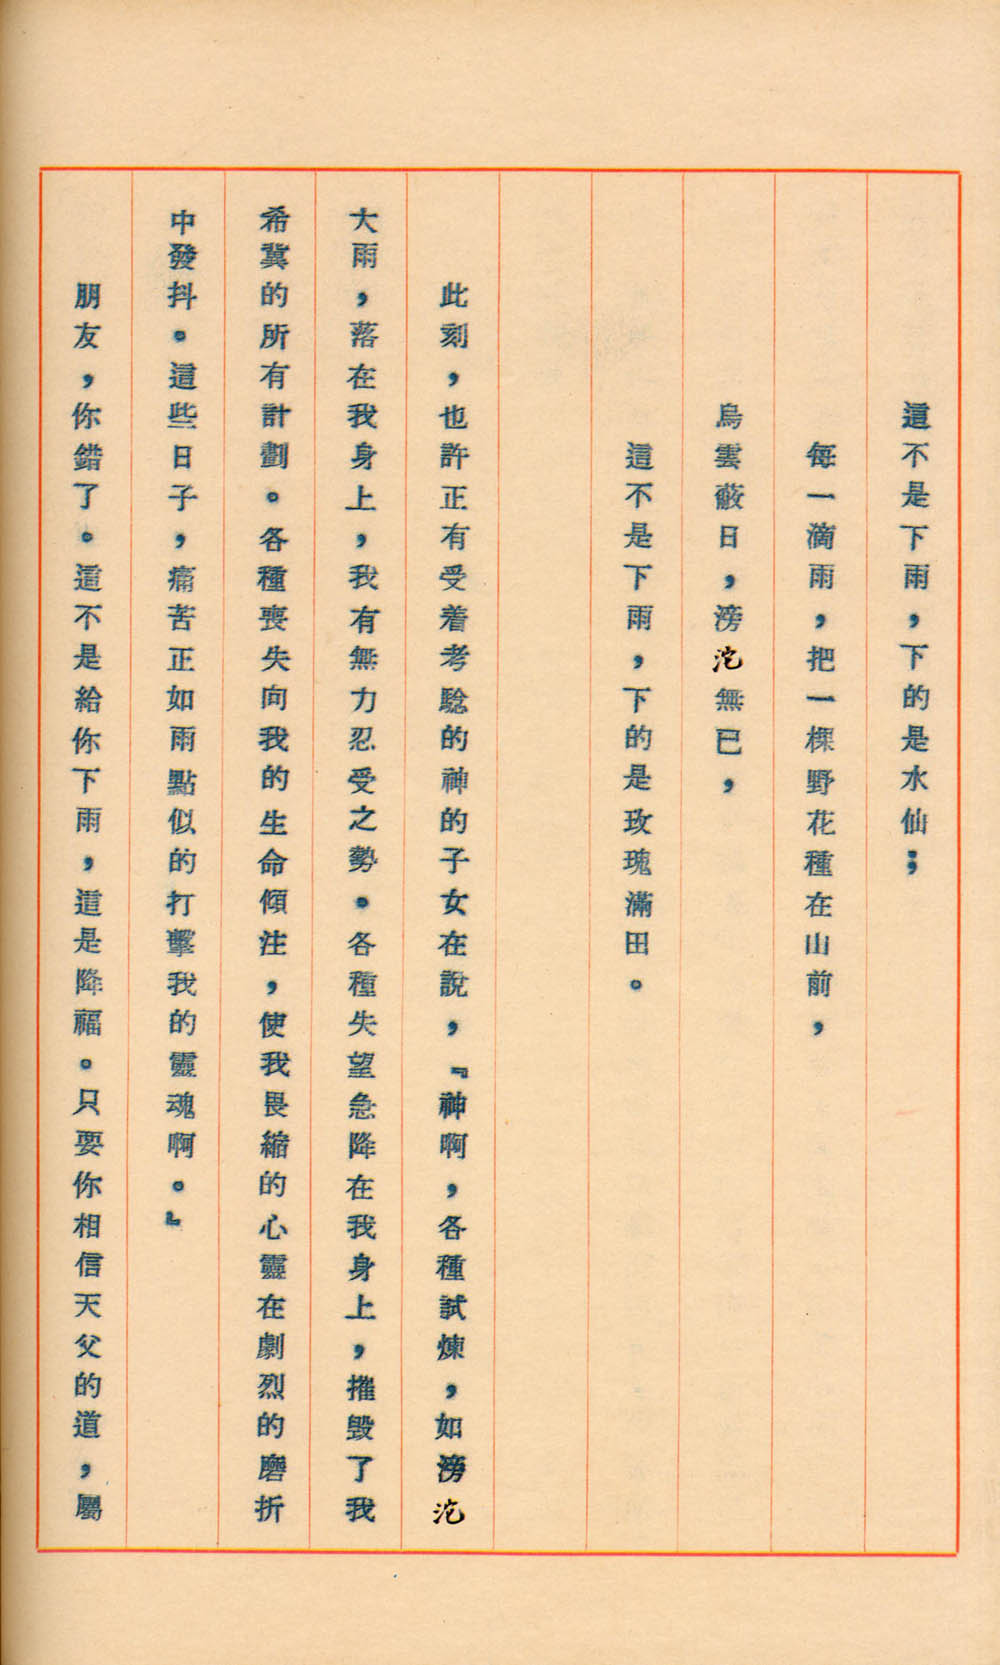 這不是下雨，下的是水仙；
每一滴雨，把一棵野花種在山前，
烏雲蔽日，滂沱無已，
這不是下雨，下的是玫瑰滿田。
此刻，也許正有受着考騐的神的子女在說，『神啊，各種試煉，如滂沱
大雨，落在我身上，我有無力忍受之勢。各種失望急降在我身上，摧毀了我
希冀的所有計劃。各種喪失向我的生命傾注，使我畏縮的心靈在劇烈的磨折
中發抖。這些日子，痛苦正如雨點似的打擊我的靈魂啊。』
朋友，你錯了。這不是給你下雨，這是降福。只要你相信天父的道，屬